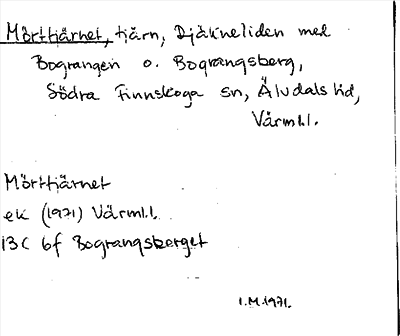 Mörttjärnet, tjärn, Djäkneliden med
Bograngen o. Bograngsberg,
Södra Finnskoga sn, Älvdals hd,
Värml.
Mörttjärnet
ek (1971) Värml.
13C 6f Bograngsberget
1.M.1971.